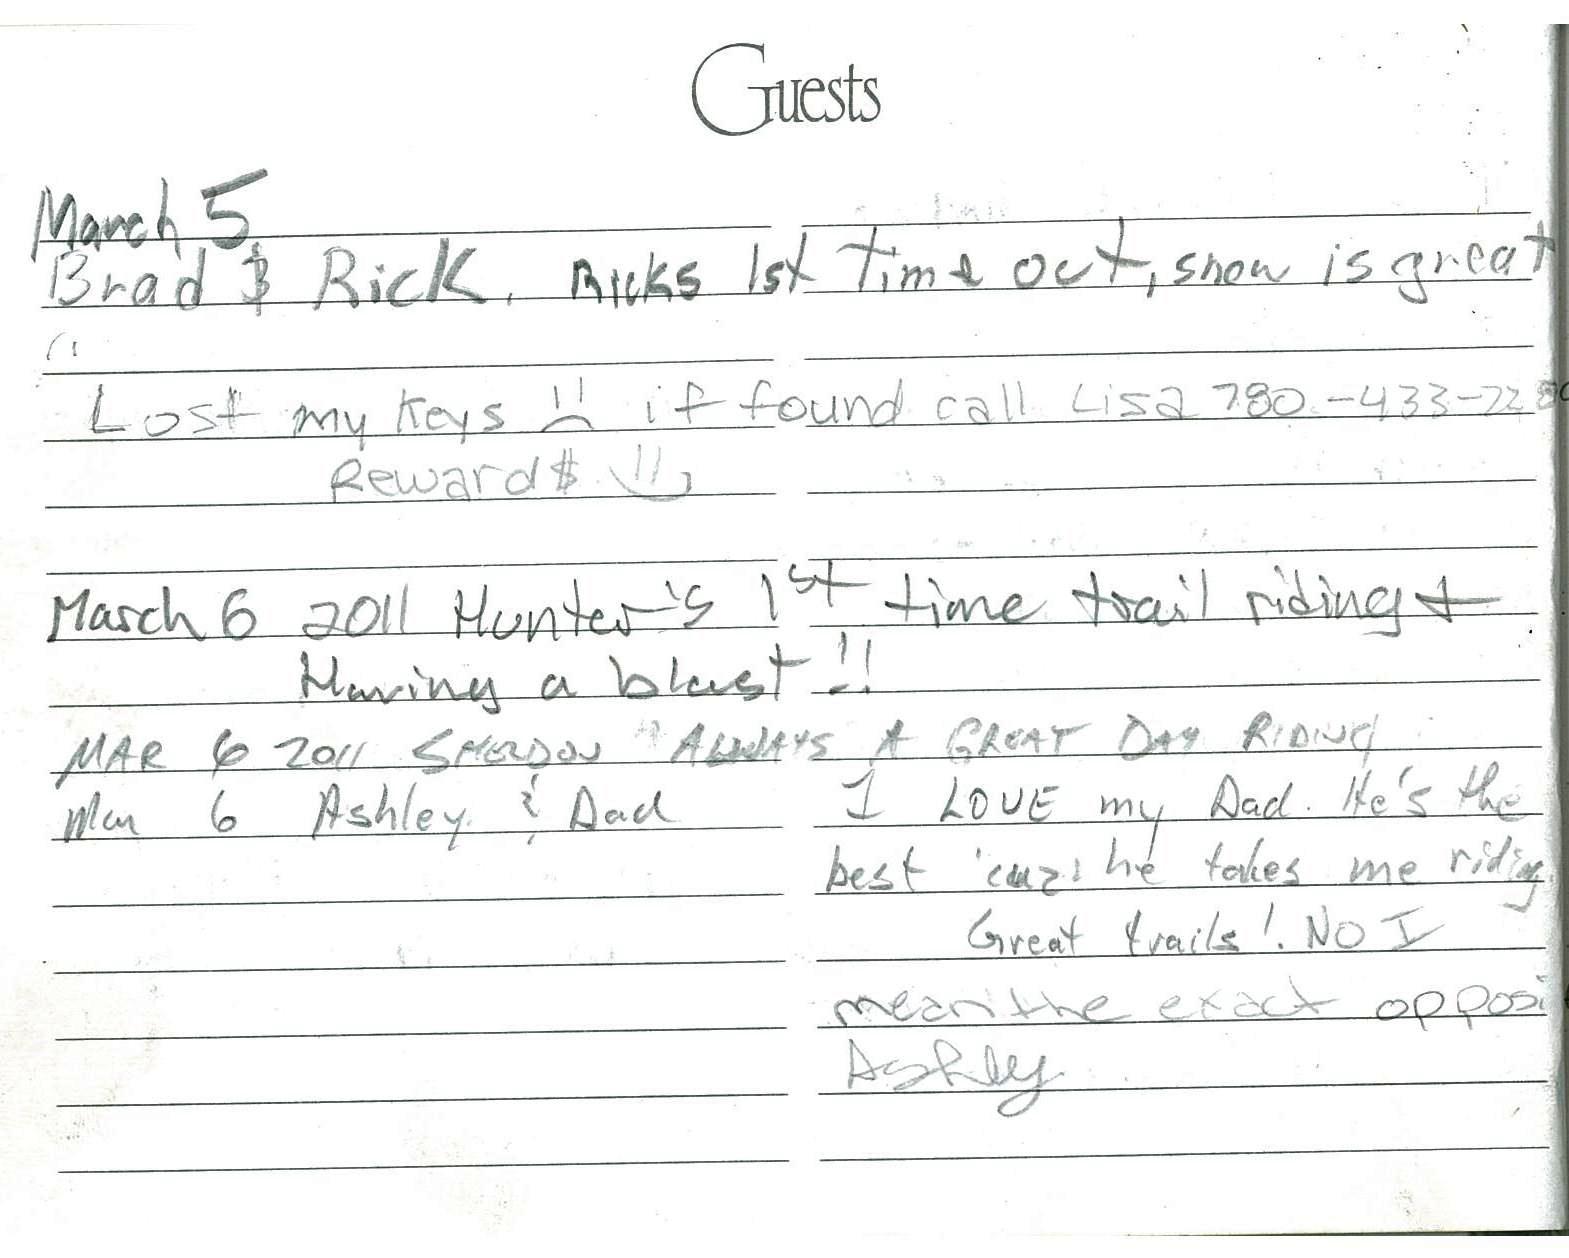 Guests
March 5
Brad & Rick. Ricks 1st Time out, snow is great
Lost my keys if found call Lisa 780-433-72
Reward$
March 6 2011 Hunter's 1st time trail riding +
Having a blast!!
MAR 6 2011 "ALWAYS A GREAT DAY RIDING
Mar 6 Ashley & Dad I LOVE my Dad. He's the
best 'cuz he takes me riding
Great trails!. NO I
mean the exact opposi
Ashley